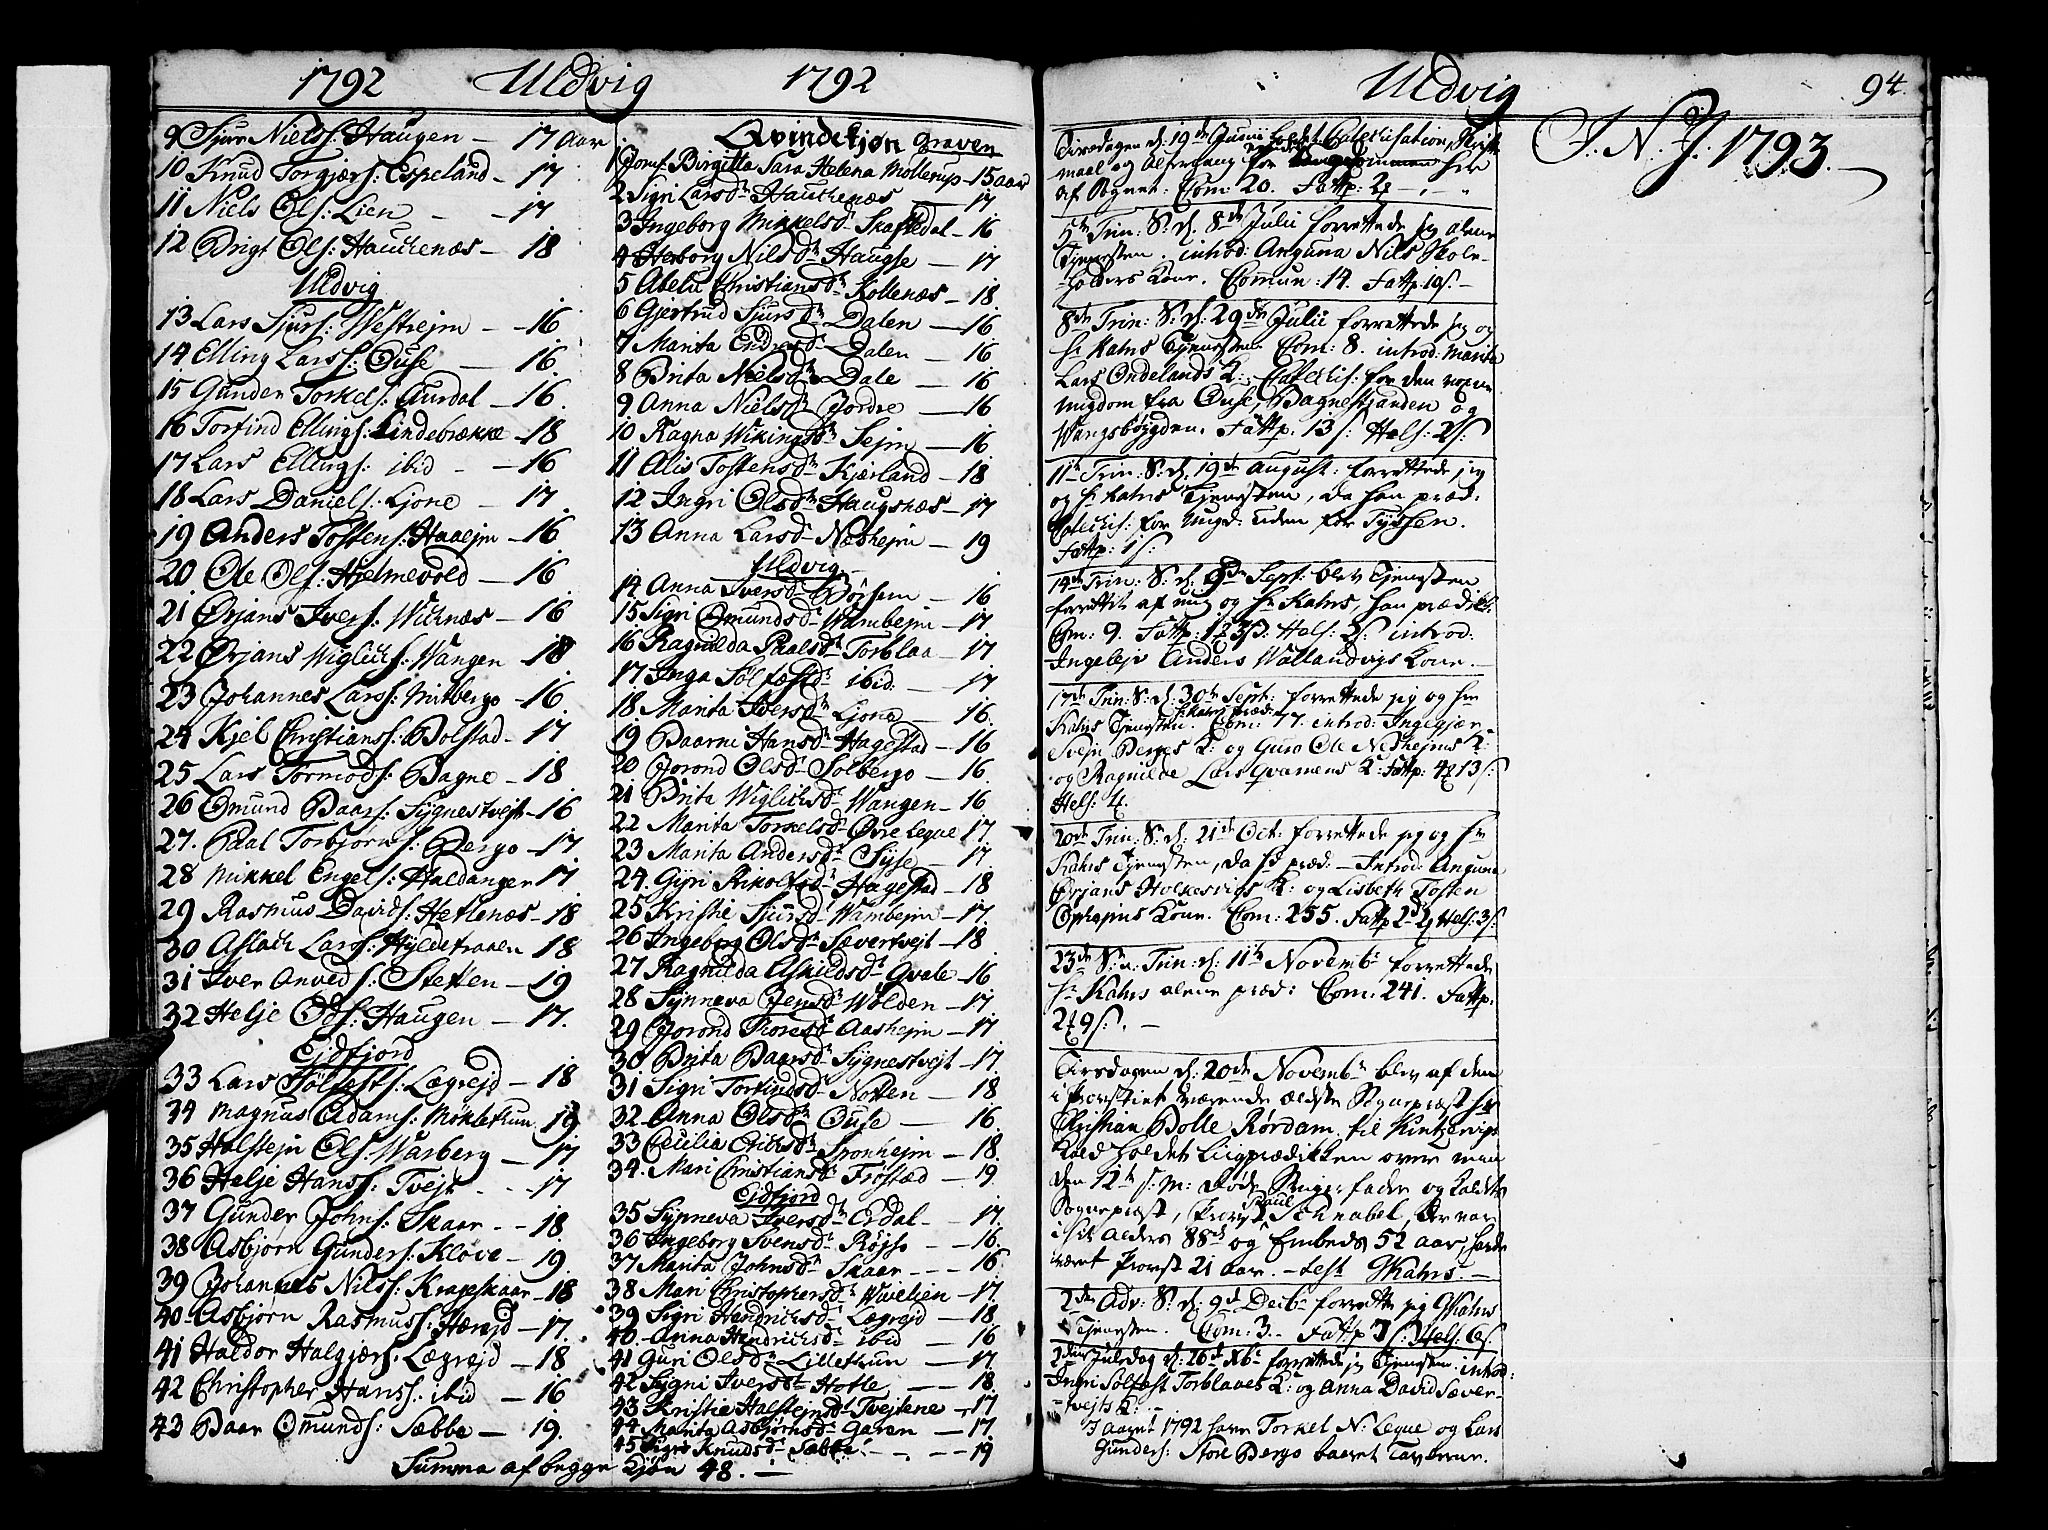 1792 Uldvig 1792
9 Siur Niels: Haugen — 17 Aar
10 Knud Torgjers: Espeland - 17
11 Niels Ols: Lien - - 17
12 Brigt Ols: Hauchenæs - 18
Uldvig
13 Lars Sjurs: Westrejm - - 16
14 Elling Lars: Ouse — 16.
15 Gunder Torkels: Aurdal - 16.
16 Torfind Ellings: Lindebrække - 18
17 Lars Ellings: ibid - - 16
18 Lars Daniels: Ljone - 17.
19 Anders Tostens: Haaejm - 16
20 Ole Ols: Hjelmevold - 16
21 Ørjans Ivers: Wichnæs - 16
22 Ørjans Wiglichs: Wangen - 18
23 Johannes Lars: Mitbergo - 16.
24 Kjel Christians: Bolstad - 17
25 Lars Tormods: Bagne - 18
26 Omund Baars: Sygnestvejt - 16
27. Paal Torbjørns: Bergo - 17
28 Mikkel Engels: Haldanger 17
29 Rasmus Davids: Hetlenæs - 18
30 Aslach Lars: Hyldetraaen 18
31 Iver Anveds: Stetten - 19
32 Helje Ols: Haugen — 17.
Ejdfjord
33 Lars Sølfests: Lægrejd - 18
34 Magnus Adams: Mikletuun 19
35 Halstejn Ols: Warberg - 17
36 Helje Hans: Tvejt - - - 17
37 Gunder Johns: Skaar - - 18
38 Asbjørn Gunders: Kløve - 19.
39 Johannes Nils: Krageskaar - 18
40 Asbjørn Rasmus: Hærejd - 17.
41 Haldor Halgjers: Lægrejd - 18
42 Christopher Hans: ibid - 16
43 Baar Omunds: Sæbbe - 19.
Qvindekjøn Graven
1 Jomf: Birgitta Sara Helena Mollerup - 15 aar
2 Sigri Larsdr Hauchenæs - 17
3 Ingeborg Mikkelsdr Skaftedal - 16
4 Herborg Nilsdr Haugse - 17
5 Abelu Christiansdr Kollenæs - 18.
6 Gjertrud Sjursdr Dalen - 16
7 Marita Endresdr Dalen - 16
8 Brita Nielsdr Dale - 16
9 Anna Nielsdr Jordre - 16
10 Ragna Wikingsdr Sejm - 16.
11 Alis Tostensdr Kjerland - 18
12 Ingri Olsdr Haugsnæs - 17
13 Anna Larsdr Næshejm - 19
Uldvig
14 Anna Iversdr Børsem - 16
15 Sigri Omundsdr Wambejm - 17
16 Ragnilda Paalsdr Torblaa - 17
17 Inga Sølfæstdr ibid: - 17.
18 Marita Iversdr Ljone - 16.
19 Baarni Hansdr Hagestad - 16
20 Jorond Olsdr Solbergo - 16.
21 Brita Wiglichsdr Wangen - 16
22 Marita Torkelsdr Øvre Leque 17.
23 Marita Andersdr Syse - 17.
24. Gyri Rikolfsdr Hagestad - 18
25 Kristie Sjursdr Wambejm - 17.
26 Ingeborg Olsdr Sævertvejt - 18
27 Ragnilda Askildsdr Qvale - 16
28 Synneva Jensdr Wolden - 17
29 Jorond Toresdr Aashejm - 17
30 Brita Baarsdr Sygnestvejt - 17.
31 Sigri Torfindsdr Notten - 18
32 Anna Olsdr Ouse - 16.
33 Cecilia Erichsdr Sponhejm - 18.
34. Mari Christiansdr Frostad - 19.
Ejdfjord
35 Synneva Iversdr Erdal - 17.
36 Ingeborg Svensdr Røjse - 16.
37 Marita Johnsdr Skaar - - - 16
38 Mari Christophersdr Wivelien - 17.
39 Sigri Hendrichsdr Lægrejd - 18
40 Anna Hendrichsdr ibid - 16
41 Guri Olsdr Lilletuun - 17.
42 Sygni Iversdr Hotle - 18.
43 Kristie Halstejnsdr Tvejtene - 17
44 Marita Asbjørnsdr Garen - 17.
45 Sigri Knudsdr Sæbbe - 19
Summa af begge Kjøn 48.
Uldvig 94.
Tirsdagen d. 19de Junii holdt Catechisation, Skrifte
maal og Altergang for her
af Sognet. Com: 20. Fattp:
5te Trin: S: d. 8de Julii forrettede jeg alene
Tjenesten. introd: Anguna Nils Skole-
holders Kone. Commun: 14. Fattp: 10 s. —
8de Trin: S: d. 29de Julii forrettede jeg og
Hr Kahrs Tjenesten. Com: 8. introd: Marita
Lars Ondelands K: Catechis: for den voxne
Ungdom fra Ouse, Bagnestranden og
Wangsbøygden. Fattp. 13 s: Hels: 2 s:
11te Trin: S: d. 19de August: forrettede jeg
og Hr Kahrs Tjenesten, da han præd:
Catechis: for Ungd: uden for Tyssen.
Fattp: 1 s:
14de Trin: S: d. 9de Sept: blev Tjenesten
forrettet af mig og Hr Kahrs, han prædik:
Com: 9. Fattp: Hels: 2 s: introd:
Ingelejv Anders Wallandvigs Kone. —
17de Trin: S: d. 30te Sept: forrettede jeg og Hr
Kahrs Tjenesten. Hr Kahrs præd: Com: 77. introd: Ingegjær
Svejn Berges K: og Guro Ole Neshejms K:
og Ragnilde Lars Qvamens K: Fattp: 13 s:
Hels: 4.
20de Trin: S: d. 21de Oct: forrettede jeg og Hr
Kahrs Tjenesten, da præd: — Introd: Anguna
Ørjans Holkesvigs K: og Lisbeth Tosten
Ophejms Kone. Com: 255. Fattp Hels: 3 s:
23de S: Trin: d. 11te Novembr forrettede
Hr Kahrs alene præd: Com: 241. Fattp:
9 s:. —
Tirsdagen d: 20de Novembr blev af den
i Provstiet værende ældste Sognepræst Hr
Christian Bolle Rørdam til Kintzervigs
Kald holdet Liigprædikken over min
den 12te s: m: døde Svigerfader og Kaldets
Sognepræst, Provst Poul Schnabel, der var
i sit Alders 88de og Embeds 52 aar, havde
været Provst 21 aar. — test GKahrs. —
2den Adv: S: d. 9de Decbr forrette jeg GKahrs
Tjenesten. Com: 3. Fattp 3 s: Hels: 6 s:
2den Juledag d: 26d Xbr forrettede jeg Tjenesten. introd:
Ingri Sølfest Torblaaes K: og Anna David Sæver-
tvejts K: -
I aaret 1792 have Torkel N: Leque og Lars
Gunders: Store Bergo baaret Tavlerne.
I. N. J. 1793.